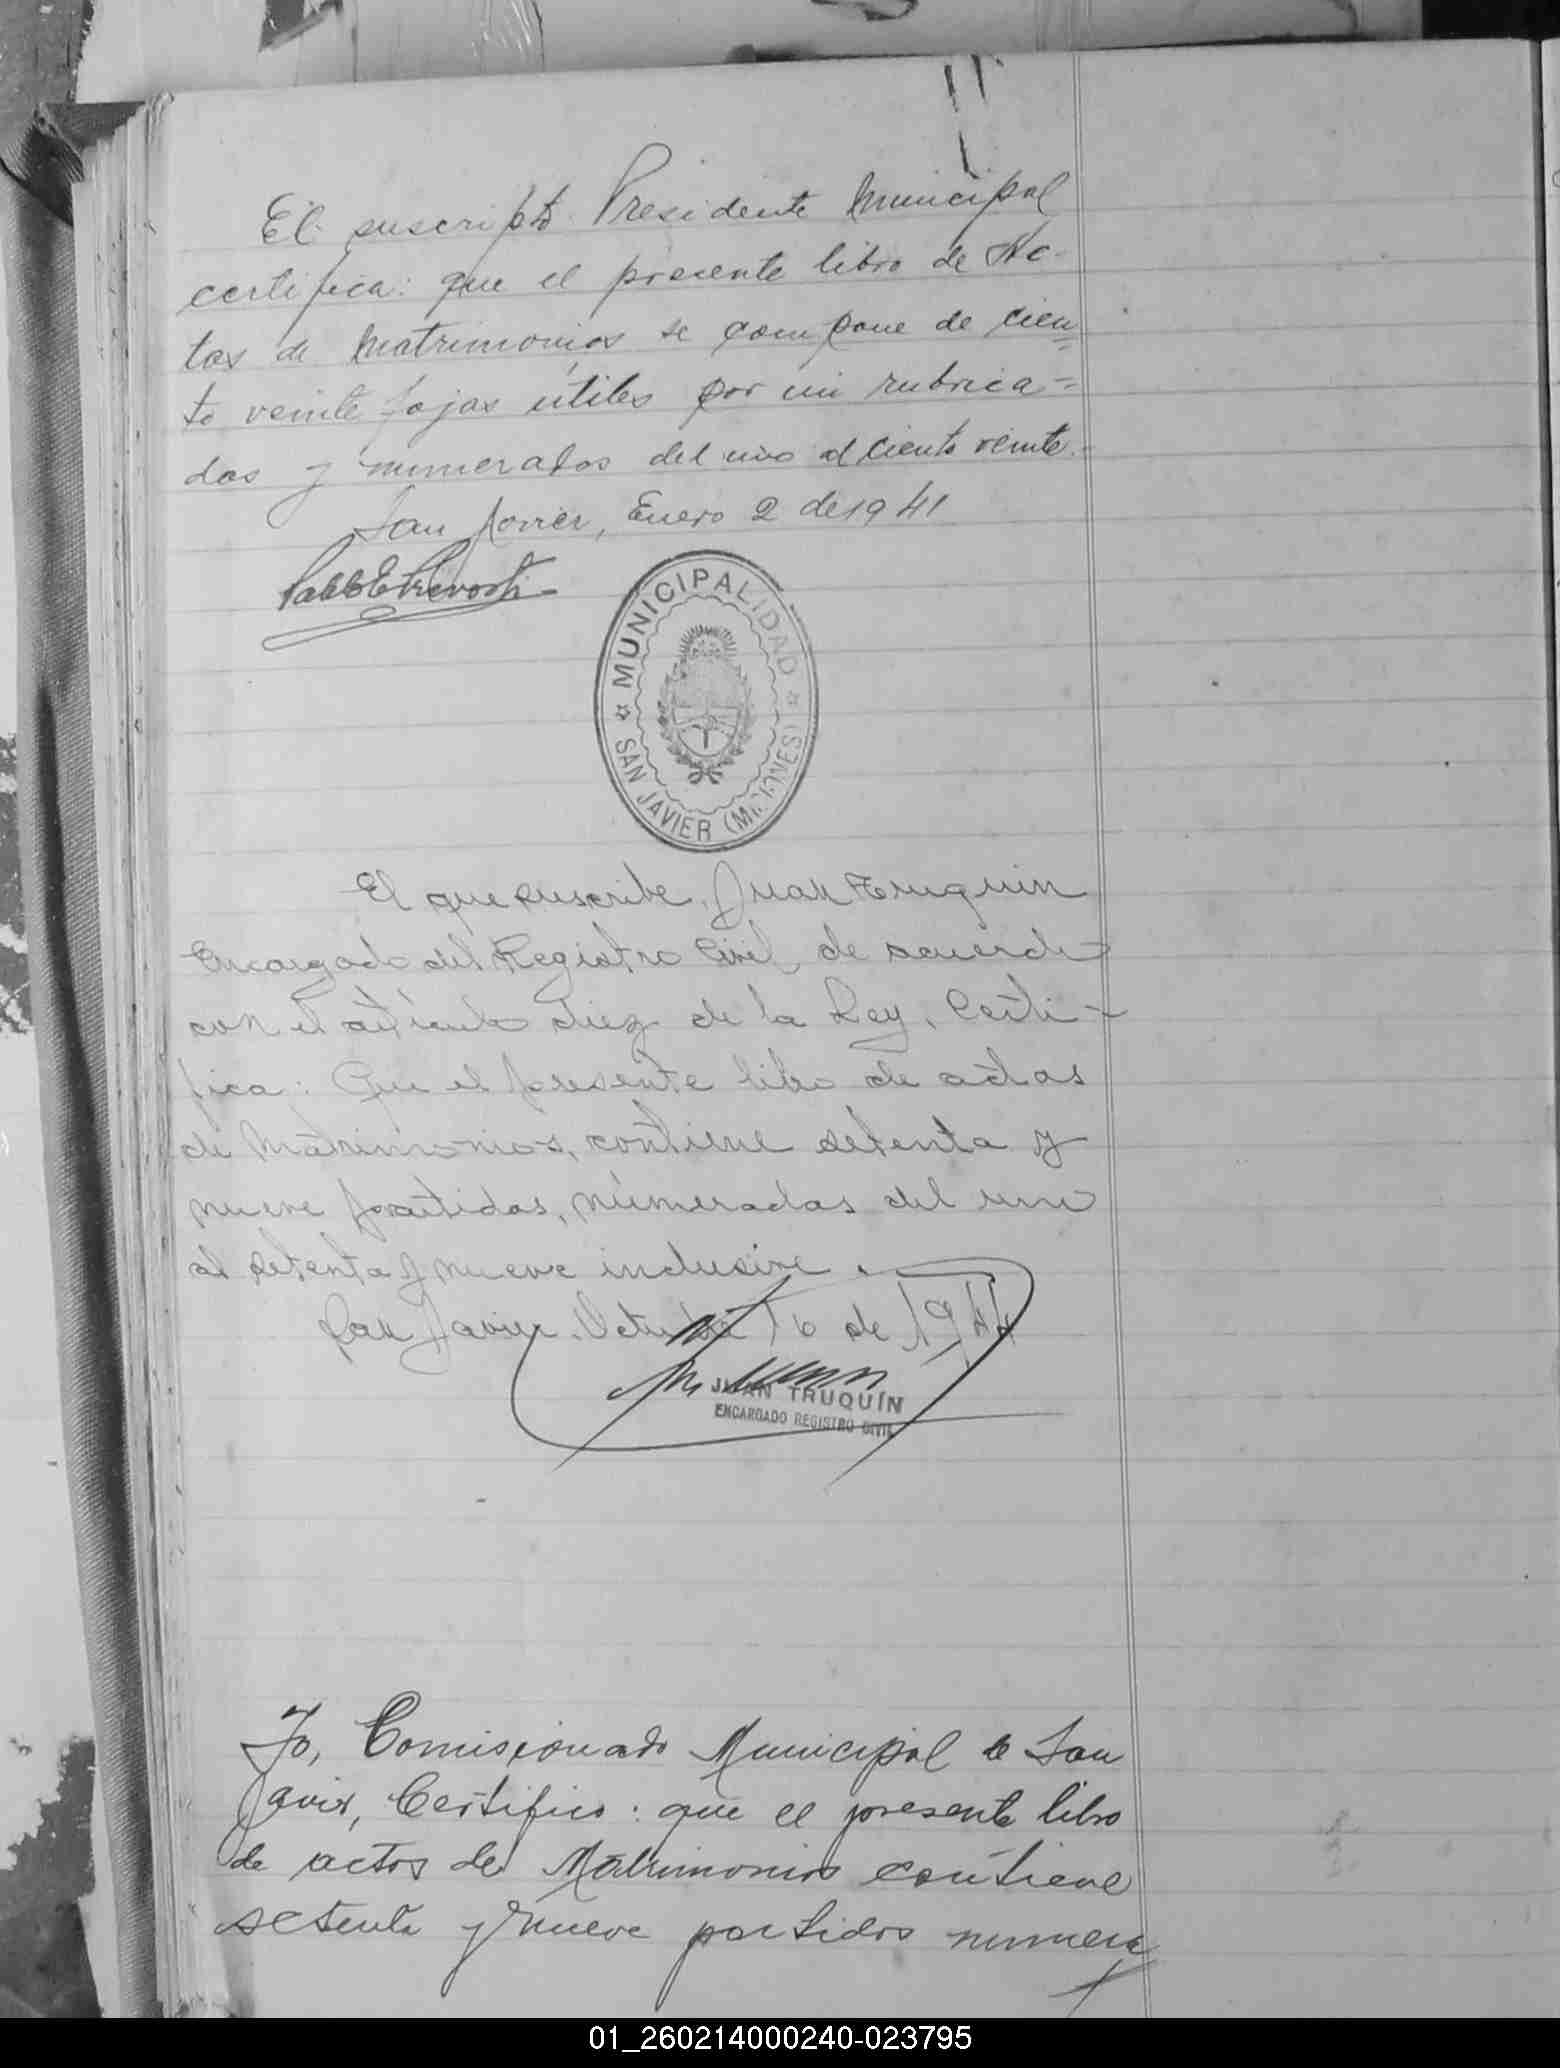 El suscripto Presidente Municipal
certifica: que el presente libro de Ac-
tas de Matrimonios se compone de cien=
to veinte fojas útiles por mi rubrica=
das y numeradas del uno al ciento veinte.-
San Javier, Enero 2 de 1941
Pablo E Prevosti
MUNICIPALIDAD
SAN JAVIER (MISIONES)
El que suscribe, Juan Truquin
Encargado del Registro Civil, de acuerdo
con el artículo diez de la Ley, Certi-
fica: Que el presente libro de actas
de Matrimonios, contiene setenta y
nueve partidas, numeradas del uno
al setenta y nueve inclusive.
San Javier. Octubre 16 de 1944
JUAN TRUQUÍN
ENCARGADO REGISTRO CIVIL
Yo, Comisionado Municipal de San
Javier, Certifico: que el presente libro
de actas de Matrimonios contiene
setenta y nueve partidas numera
01_260214000240-023795